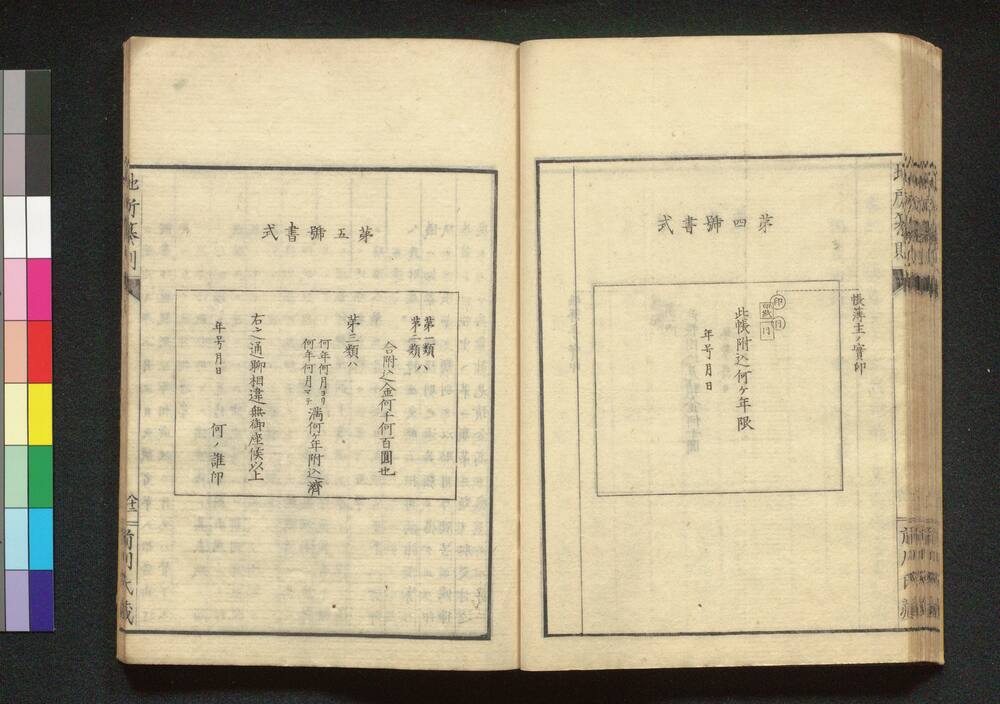 第四號書式
帳簿主ノ實印
印
罫紙
此帳附込何ヶ年限
年号月日
第五號書式
第一類
第二類ハ
合附込金何千何百圓也
第三類ハ
何年何月ヨリ
何年何月マテ
満何ヶ年附込濟
右之通聊相違無御座候以上
年号月日
何ノ誰印